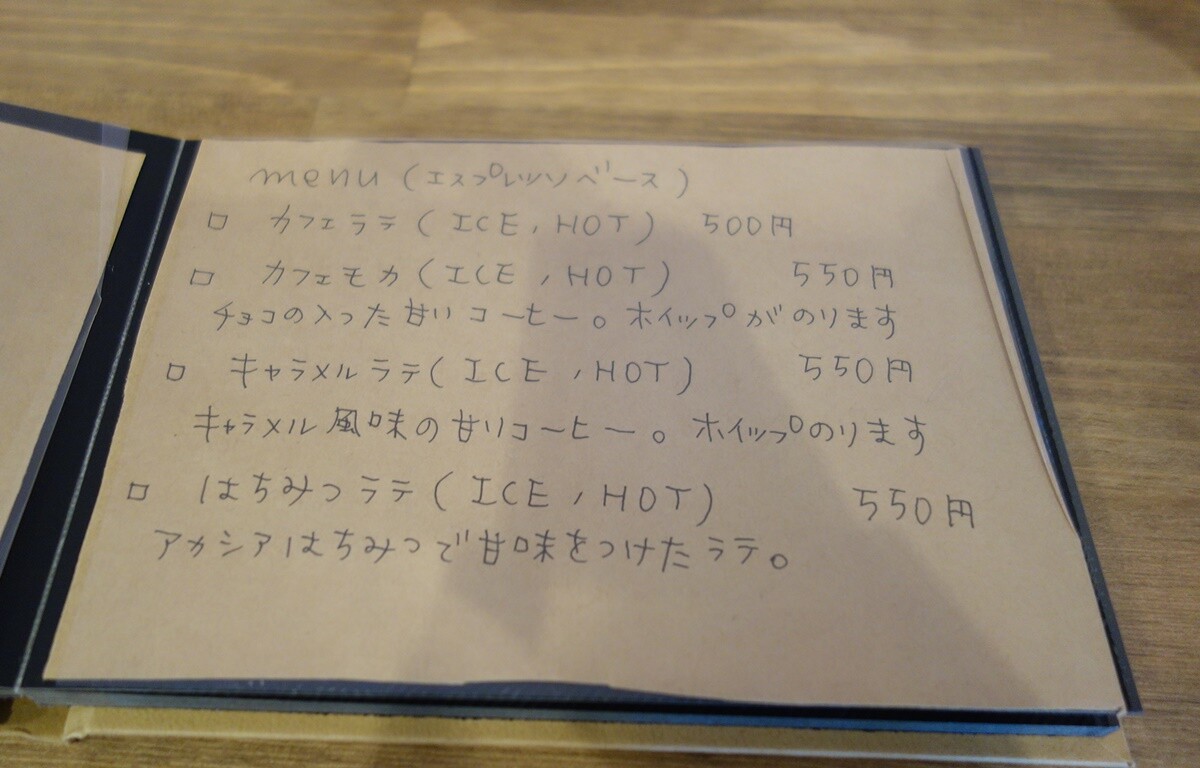 menu (エスプレッソベース)
□ カフェラテ(ICE,HOT) 500円
□ カフェモカ(ICE,HOT) 550円
チョコの入った甘いコーヒー。ホイップがのります
□ キャラメルラテ(ICE,HOT) 550円
キャラメル風味の甘いコーヒー。ホイップのります
□ はちみつラテ(ICE,HOT) 550円
アカシアはちみつで甘味をつけたラテ。